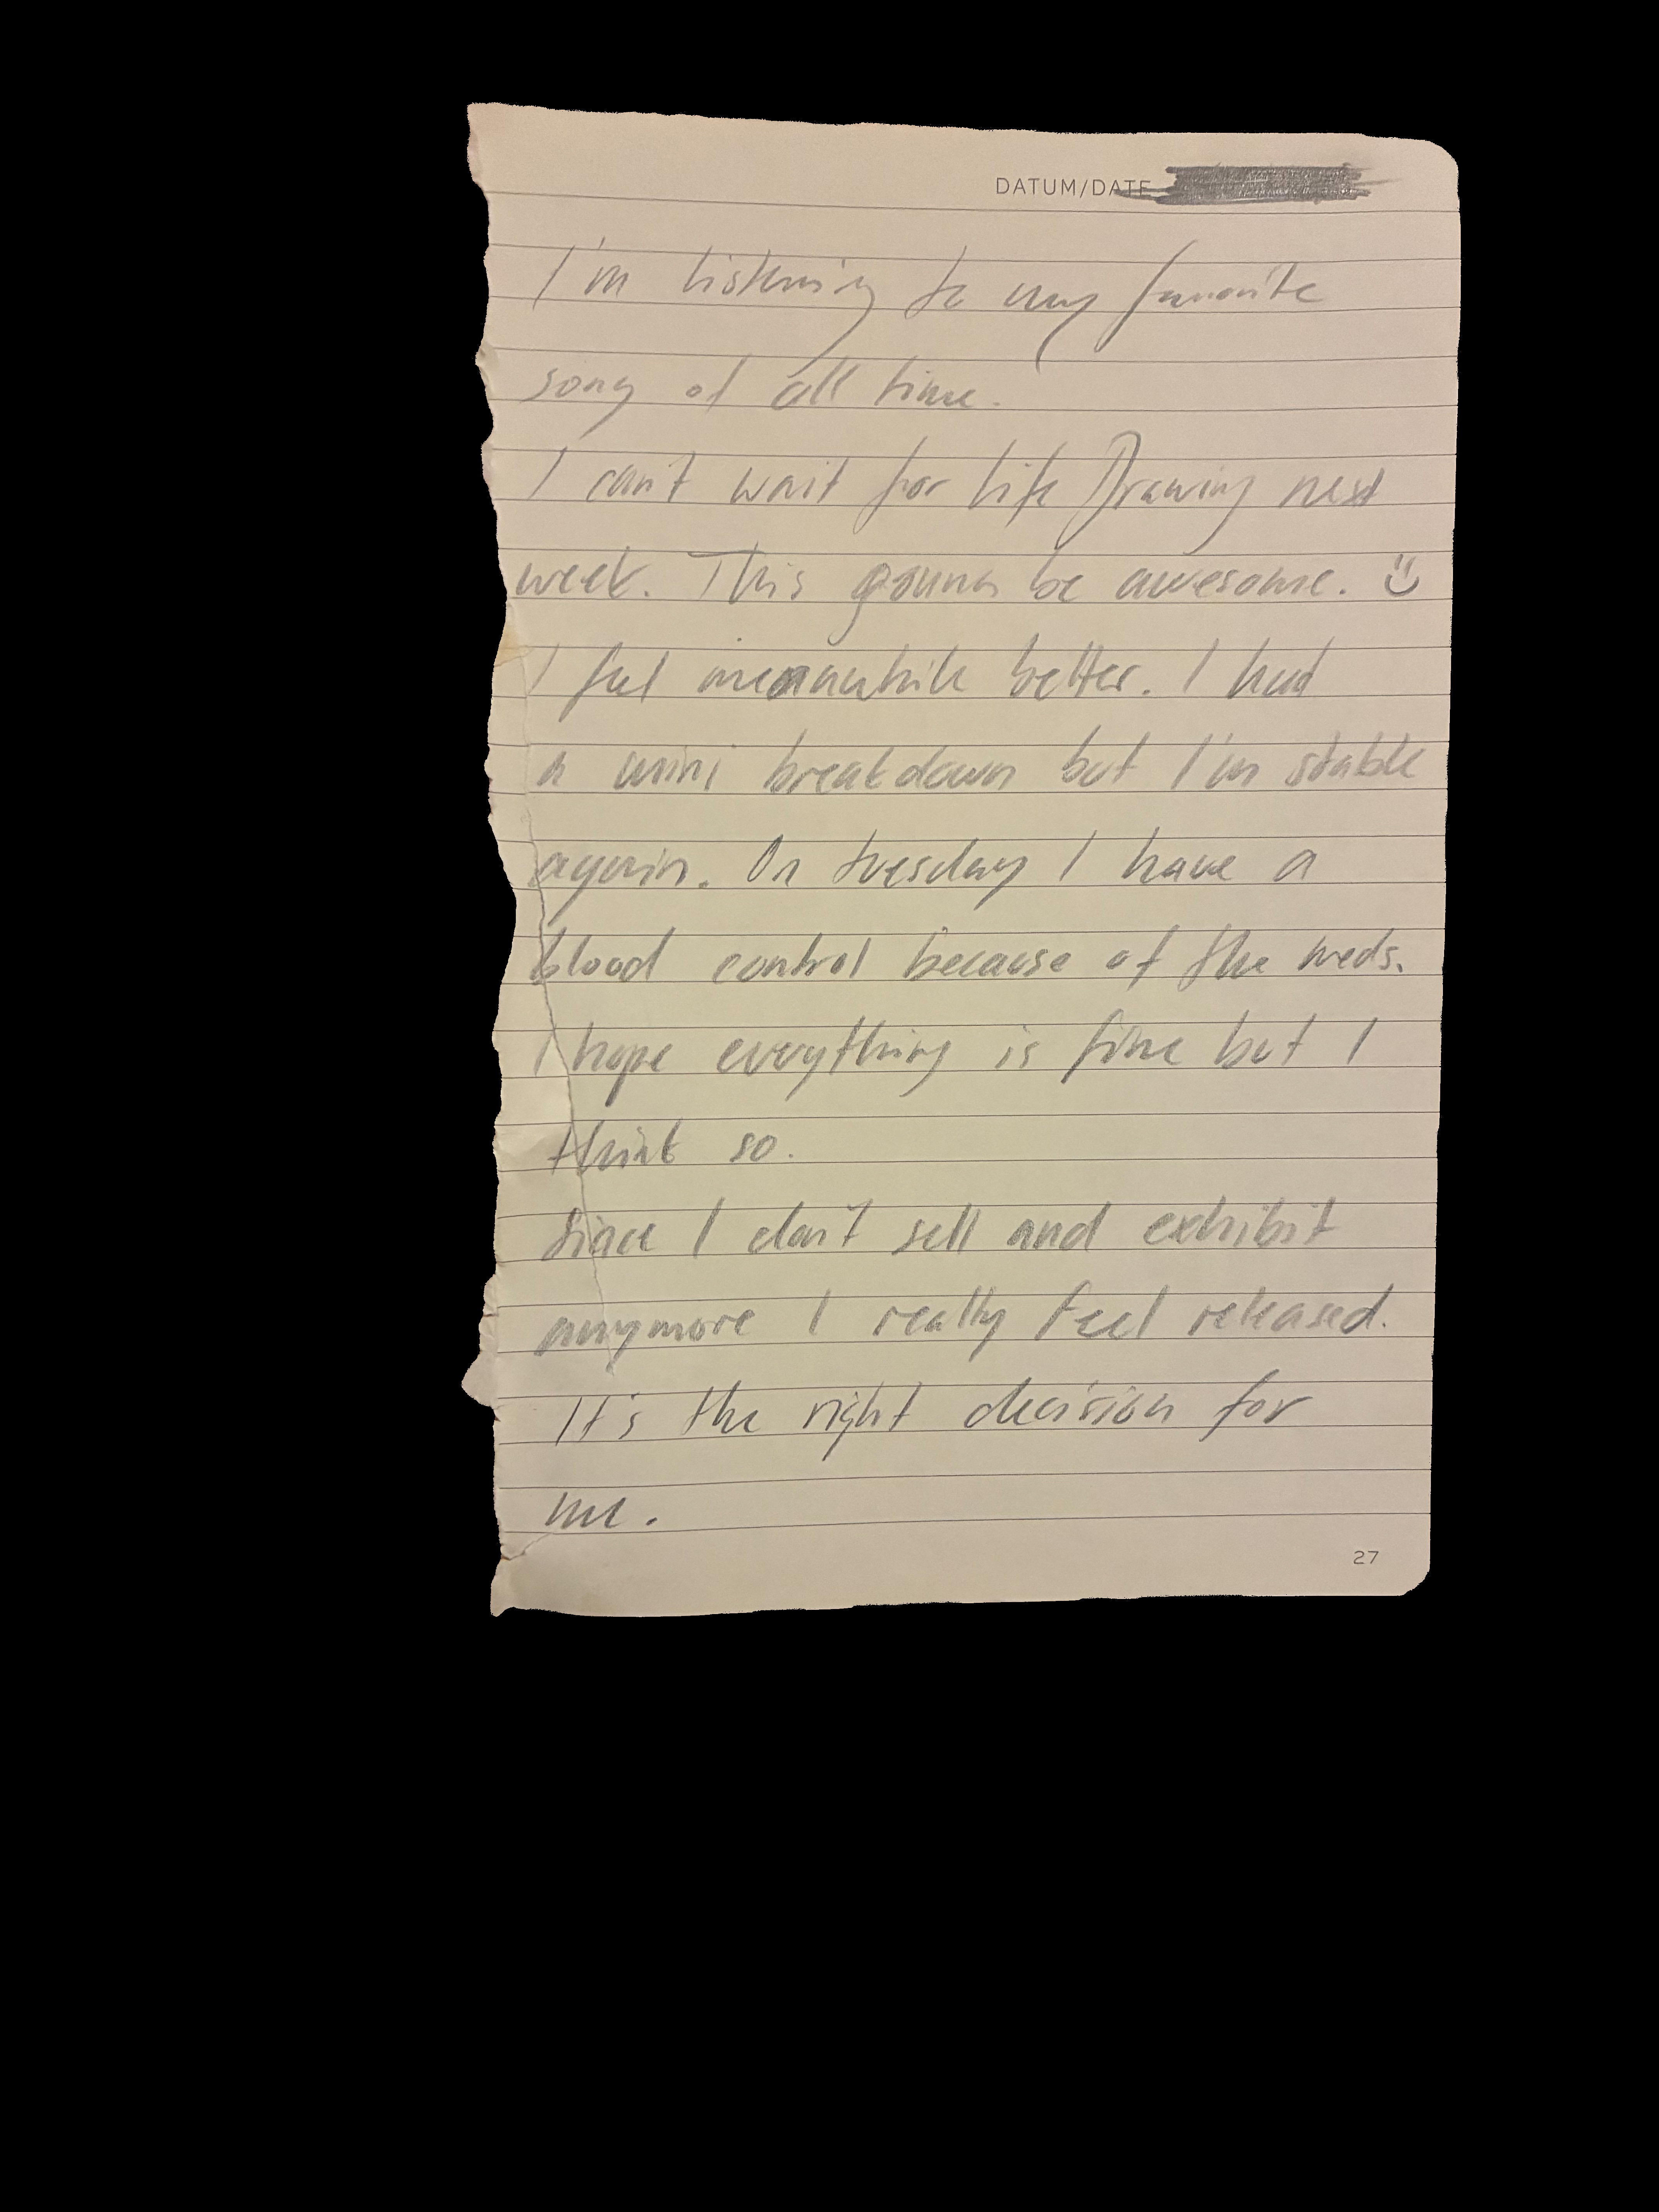 DATUM/DATE
I'm listening to my favorite
song of all time.
I can't wait for Life Drawing next
week. This gonna be awesome. :)
I feel meanwhile better. I had
a mini breakdown but I'm stable
again. On tuesday I have a
blood control because of the meds.
I hope everything is fine but I
think so.
Since I don't sell and exhibit
anymore I really feel released.
It's the right decision for
me.
27